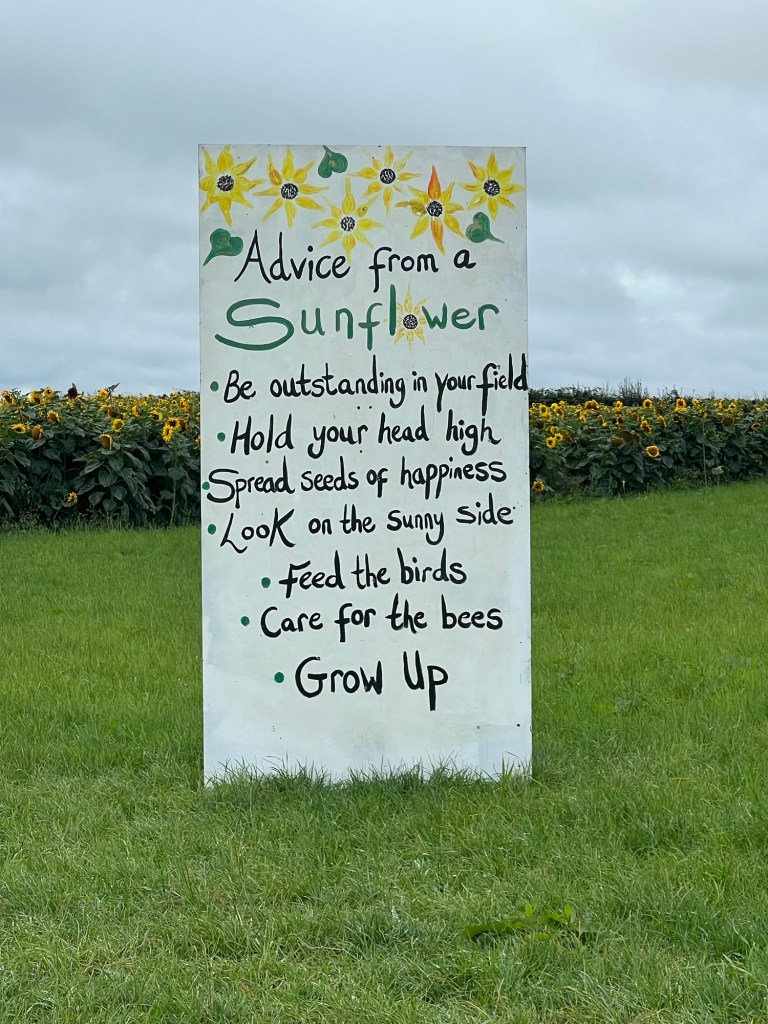 Advice from a
Sunflower
• Be outstanding in your field
• Hold your head high
• Spread seeds of happiness
• Look on the sunny side
• Feed the birds
• Care for the bees
• Grow Up